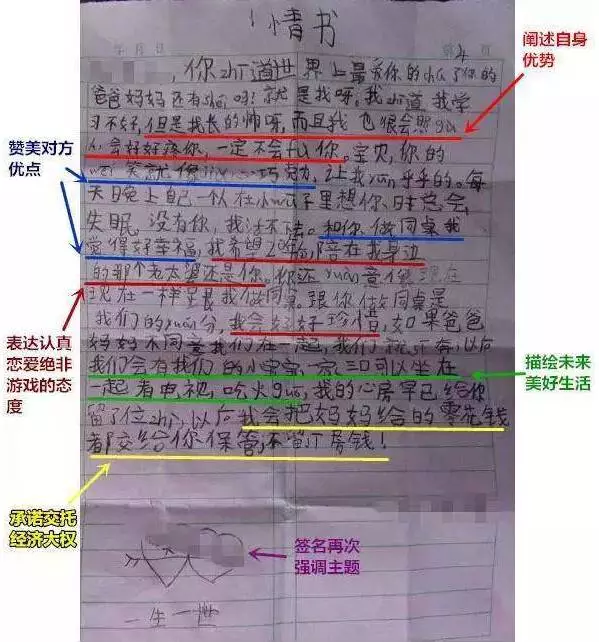 情书
年 月 日
第 4 页
,你zhi道世界上最关你的chu了你的
爸爸妈妈还有shei吗?就是我呀。我zhi道我学
习不好,但是我长的帅呀,而且我也很会照gu
会好好疼你,一定不会 你。宝贝,你的
笑就像 ,让我yun乎乎的。每
天晚上自己一人在小 子里想你、时常会
失眠。没有你,我活不 。和你做同桌我
觉得好幸福,我希望 陪在我身边
的那个老太婆还是你。你还yuan意像现在
现在一样 我做同桌。跟你做同桌是
我们的yuan分,我会好好珍惜,如果爸爸
妈妈不同意我们在一起,我们 ,以后
我们会有我们的小宝宝,一家三口可以坐在
一起看电视,吃火guo,我的心房早已给你
留了位zhi,以后我会把妈妈给的零先钱
都交给你保管,不留 房钱!
一生一世
阐述自身
优势
赞美对方
优点
表达认真
恋爱绝非
游戏的态
度
描绘未来
美好生活
承诺交托
经济大权
签名再次
强调主题